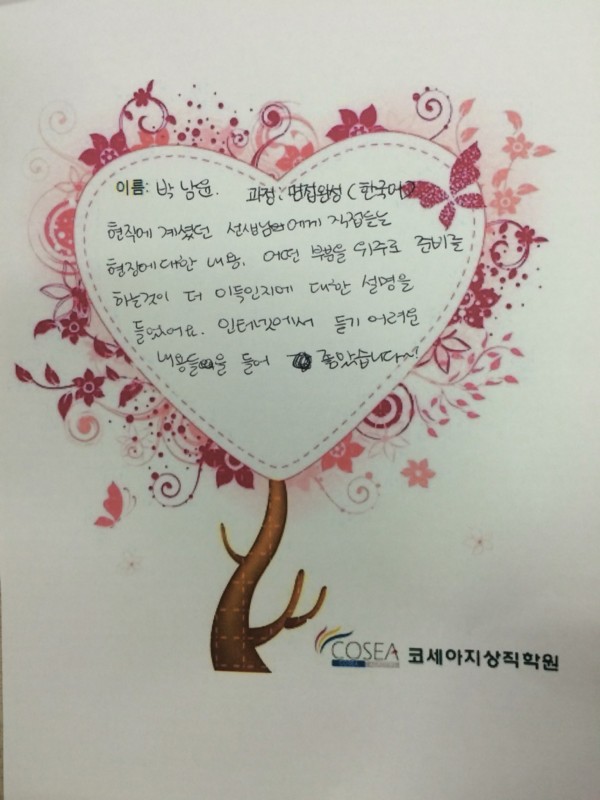 이름: 박남윤. 과정: 면접완성 (한국어)
현직에 계셨던 선생님에게 직접듣는
현장에 대한 내용. 어떤 부분을 위주로 준비를
하는것이 더 이득인지에 대한 설명을
들었어요. 인터넷에서 듣기 어려운
내용들을 들어 좋았습니다~!
COSEA 코세아지상직학원